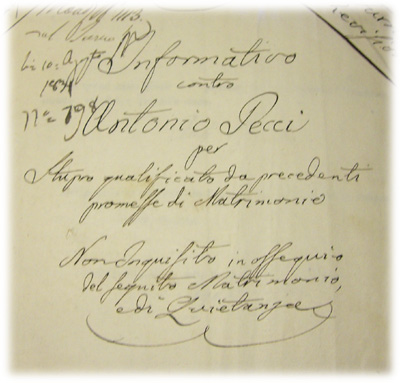 Informativo
contro
Antonio Pecci
per
Stupro qualificato da precedenti
promesse di Matrimonio
Non Inquisito in ossequio
del seguito Matrimonio,
e di Quietanza